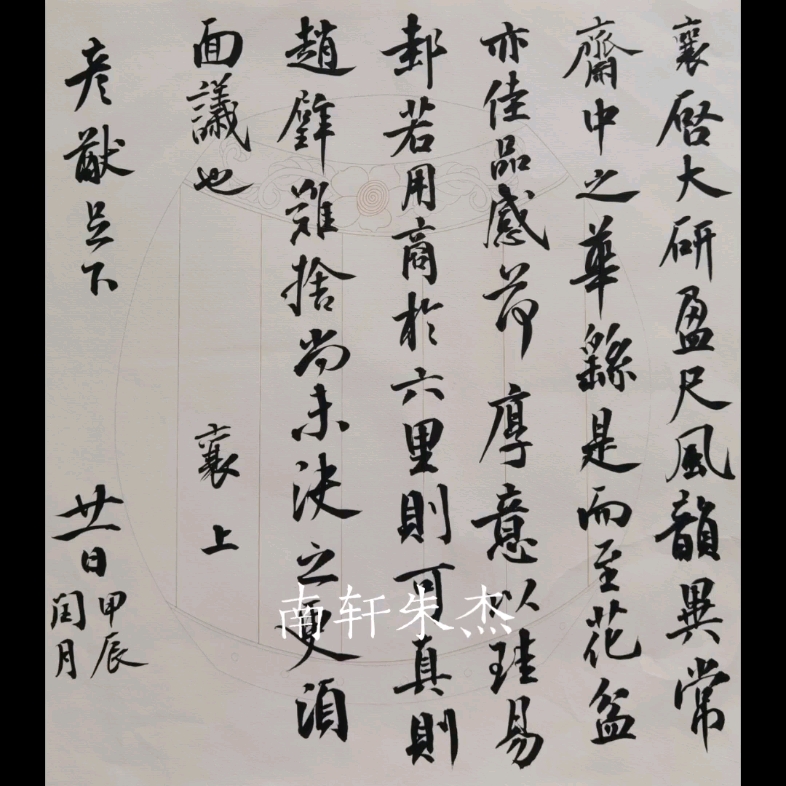 襄啓大研盈尺風韻異常
齋中之華繇是而至花盆
亦佳品感荷厚意以珪易
邽若用商於六里則可真則
趙璧難捨尚未決之更須
面議也 襄上
彦猷足下 廿一日甲辰
閏月
南轩朱杰